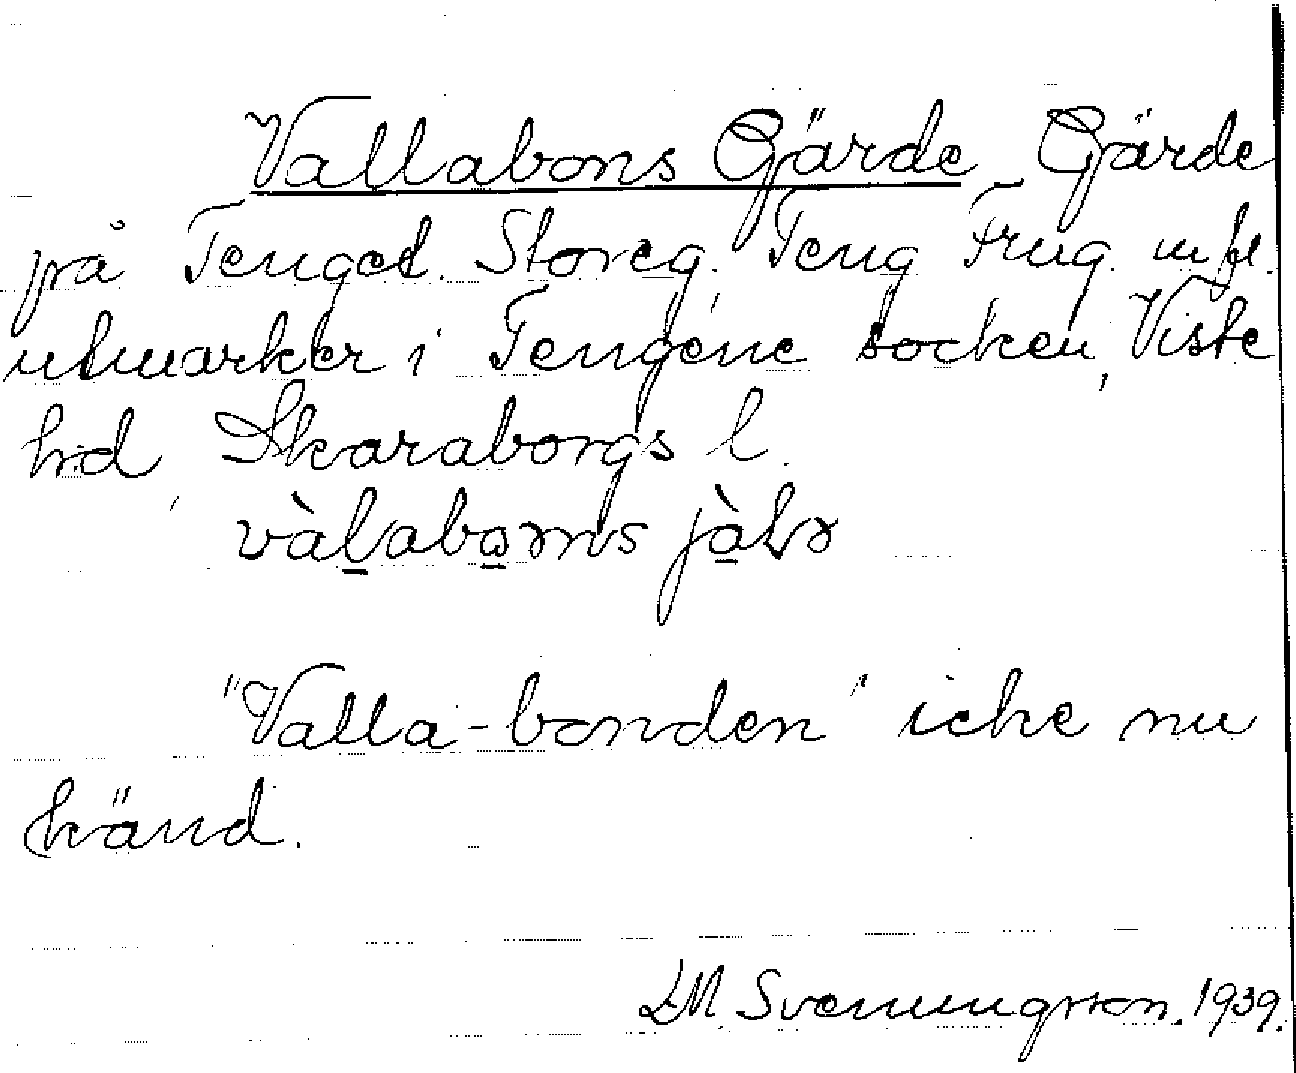 Vallabons Gärde Gärde
på Tenged. Storeg. Teng Frug. m fl.
utmarker i Tengene socken, Viste
hrd, Skaraborgs l.
vàḻabo̱mns jàḻɤ
"Valla-bonden" icke nu
känd.
LM. Svenungsson. 1939.